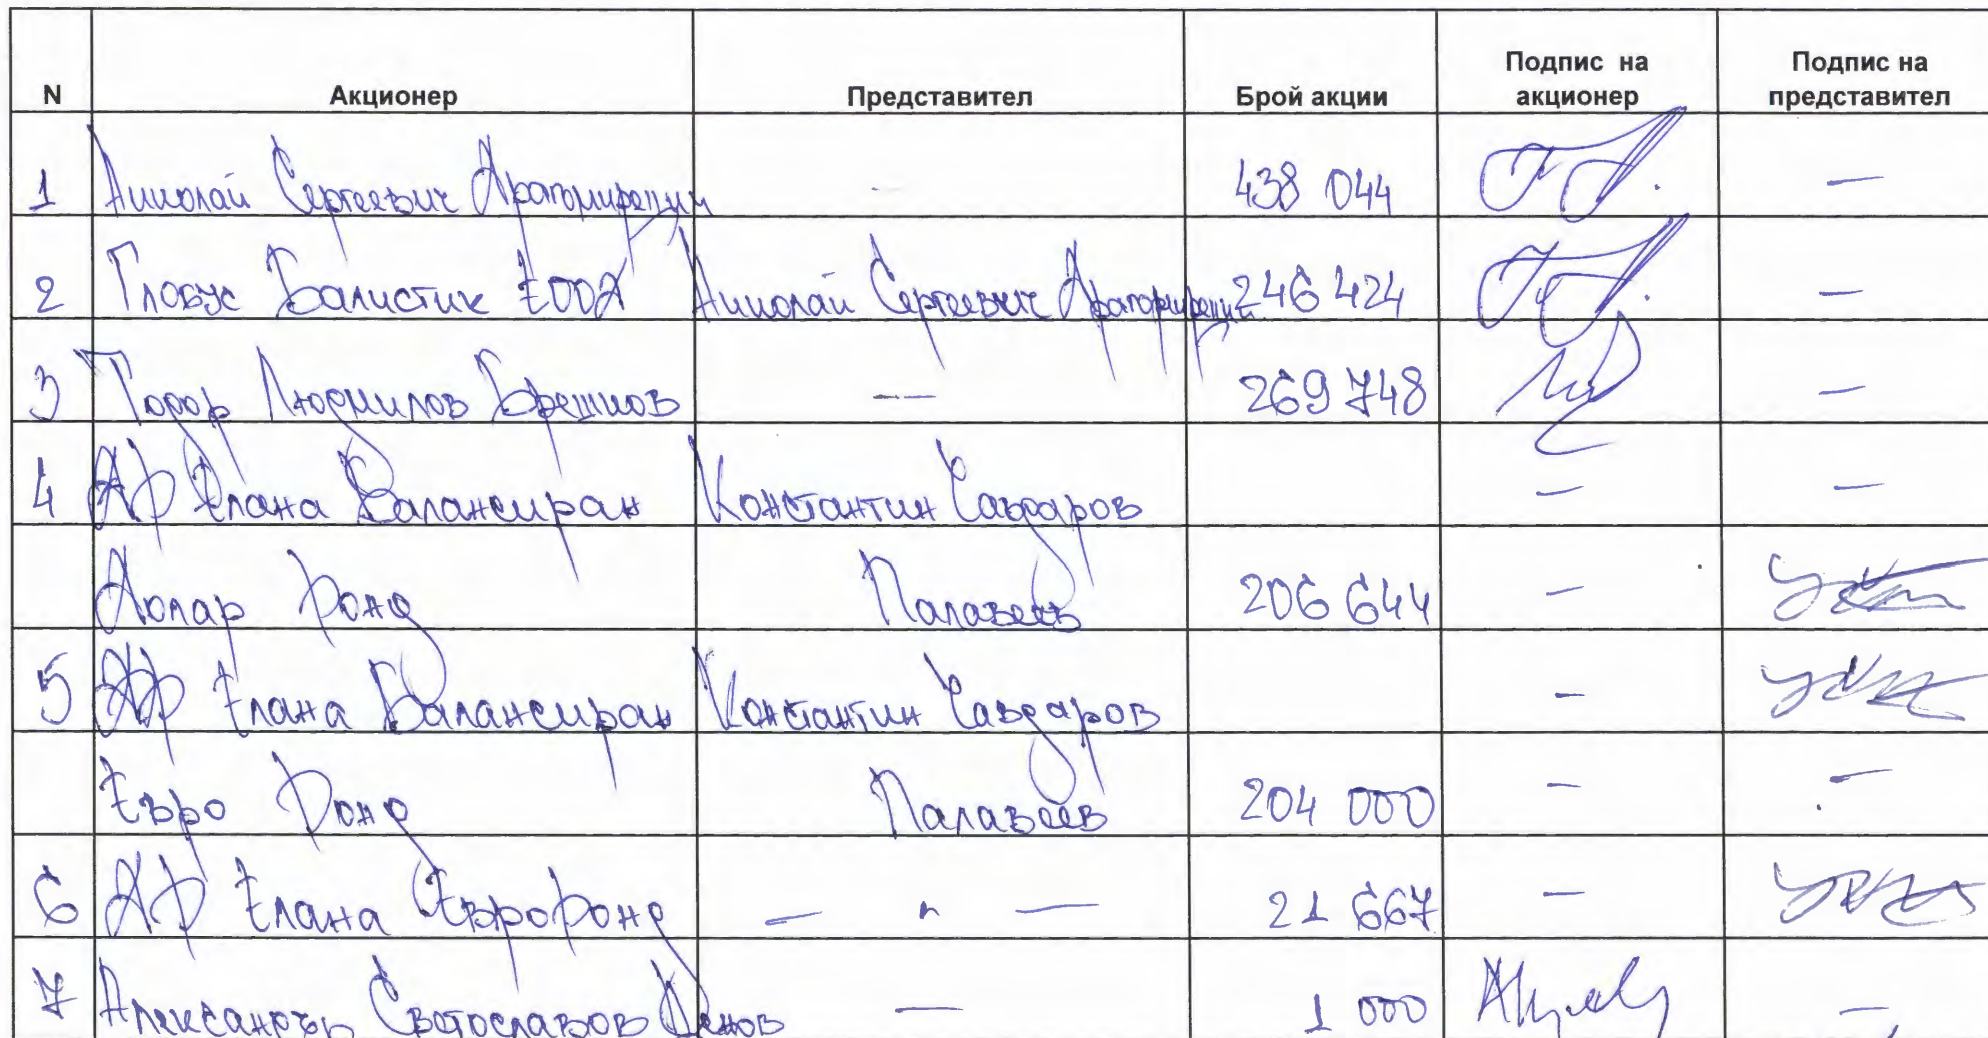 N Акционер Представител Брой акции Подпис на акционер Подпис на представител
1 Николай Сергеевич Драгомирецкий - 438 044 —
2 Глобус Балистик ЕООД Николай Сергеевич Драгомирецкий 246 424 —
3 Тодор Людмилов Брешков — 269 748 —
4 ДФ Елана Балансиран Константин Чавдаров — —
Долар Фонд Палавеев 206 644 —
5 ДФ Елана Балансиран Константин Чавдаров —
Евро Фонд Палавеев 204 000 — —
6 ДФ Елана Еврофонд — " — 21 667 —
7 Александър Святославов Денов — 1 000 —